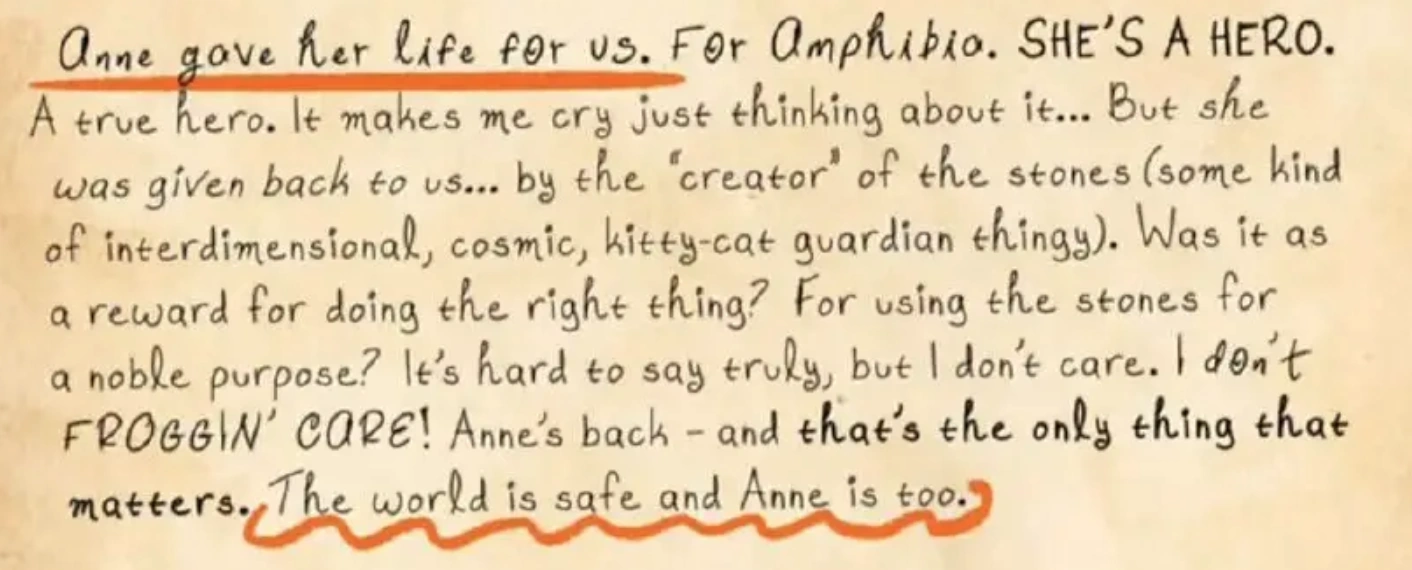 Anne gave her life for us. For Amphibia. SHE'S A HERO.
A true hero. It makes me cry just thinking about it... But she
was given back to us... by the "creator" of the stones (some kind
of interdimensional, cosmic, kitty-cat guardian thingy). Was it as
a reward for doing the right thing? For using the stones for
a noble purpose? It's hard to say truly, but I don't care. I don't
FROGGIN' CARE! Anne's back - and that's the only thing that
matters. The world is safe and Anne is too.